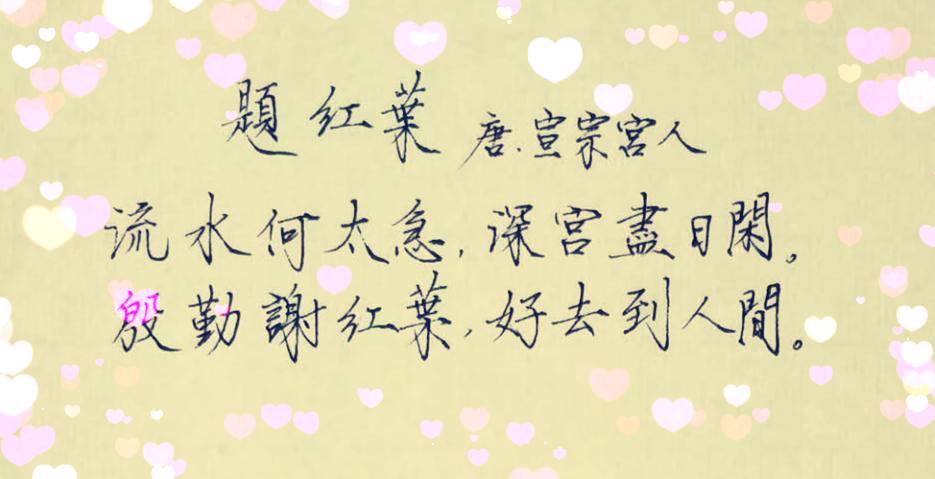 題紅葉 唐.宣宗宮人
流水何太急,深宮盡日閑。
殷勤謝紅葉,好去到人間。